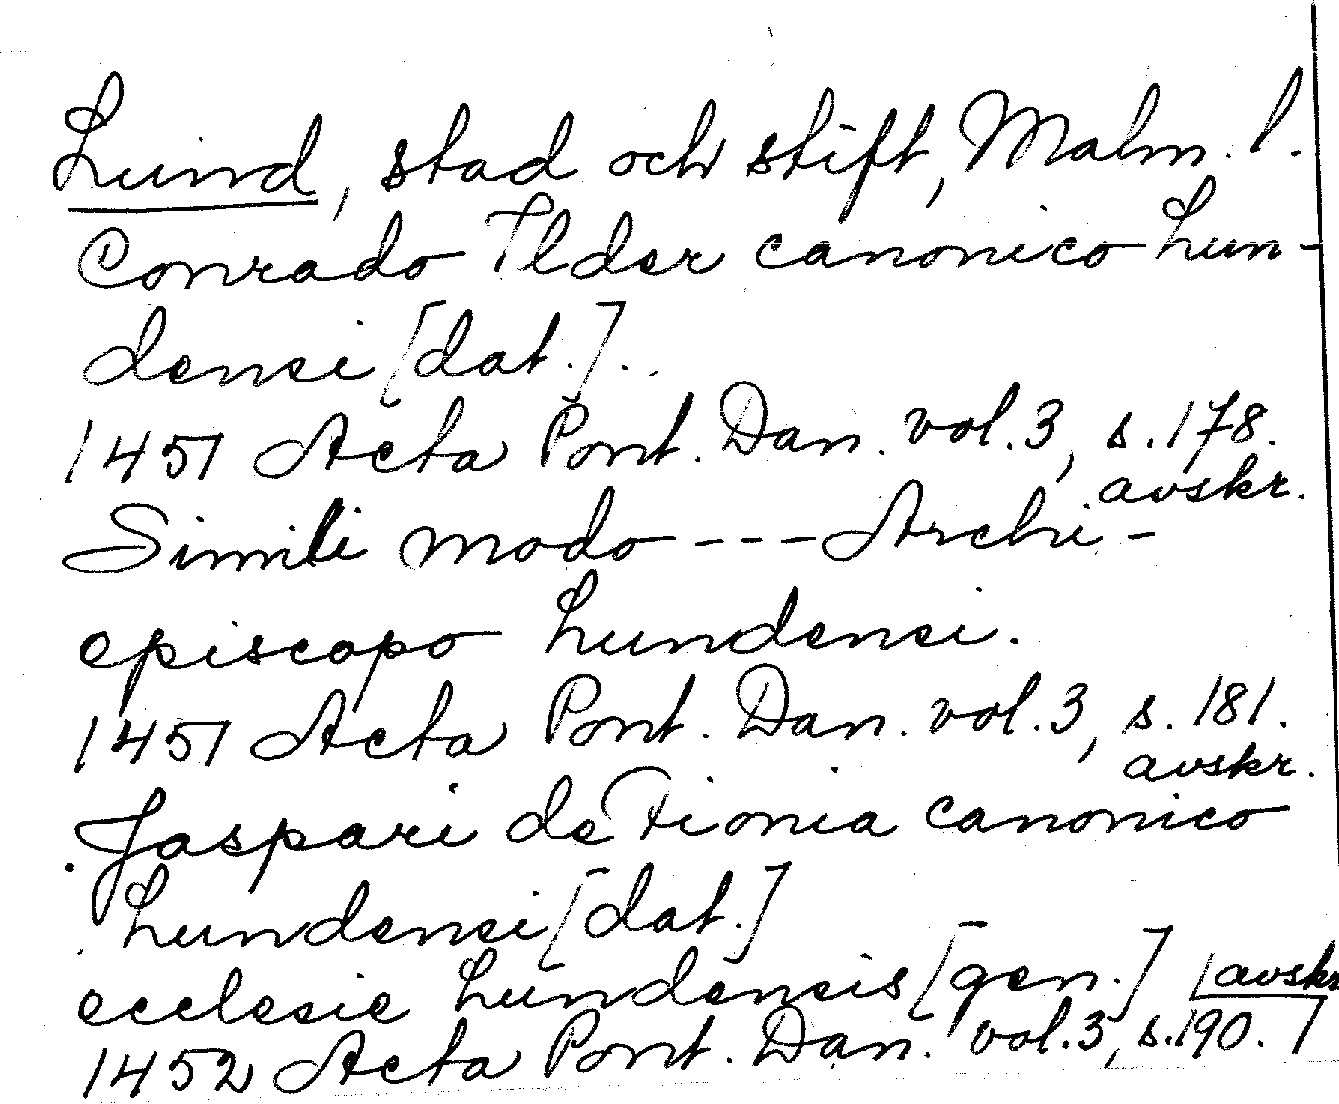 Lund, stad och stift, Malm. l.
Conrado Tlder canonico Lun-
densi [dat.].
1451 Acta Pont. Dan. vol. 3, s. 178.
avskr.
Simili modo --- Archi-
episcopo Lundensi.
1451 Acta Pont. Dan. vol. 3, s. 181.
avskr.
Jaspari de Fionia canonico
Lundensi [dat.]
ecclesie Lundensis [gen.] avskr
1452 Acta Pont. Dan. vol. 3, s. 190.